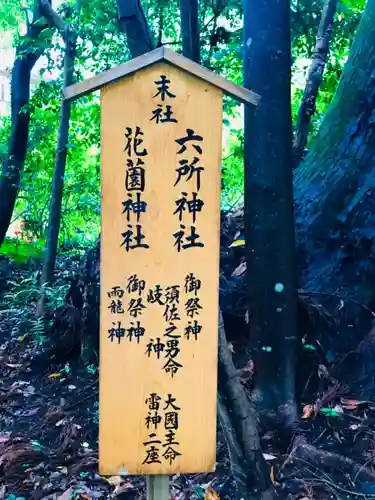 末社
六所神社
御祭神
須佐之男命
大国主命
岐神
雷神二座
花薗神社
御祭神
雨龍神